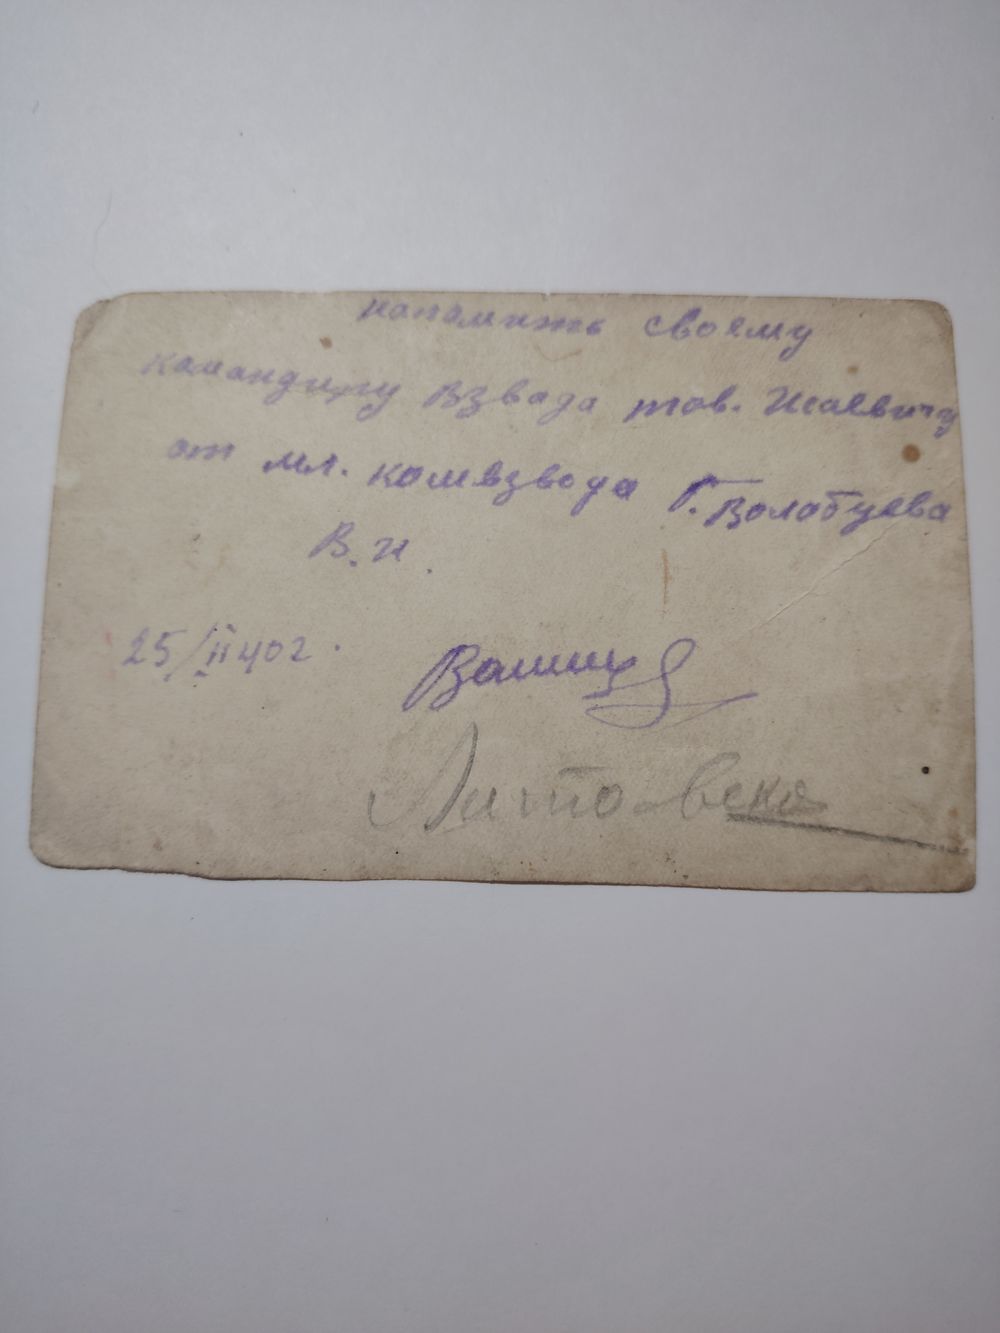 напомить своему
командиру взвада тов. Исаевичу
от мл. комвзвода Г. Волабуева
В. И.
25/II 40 г.
Литовска